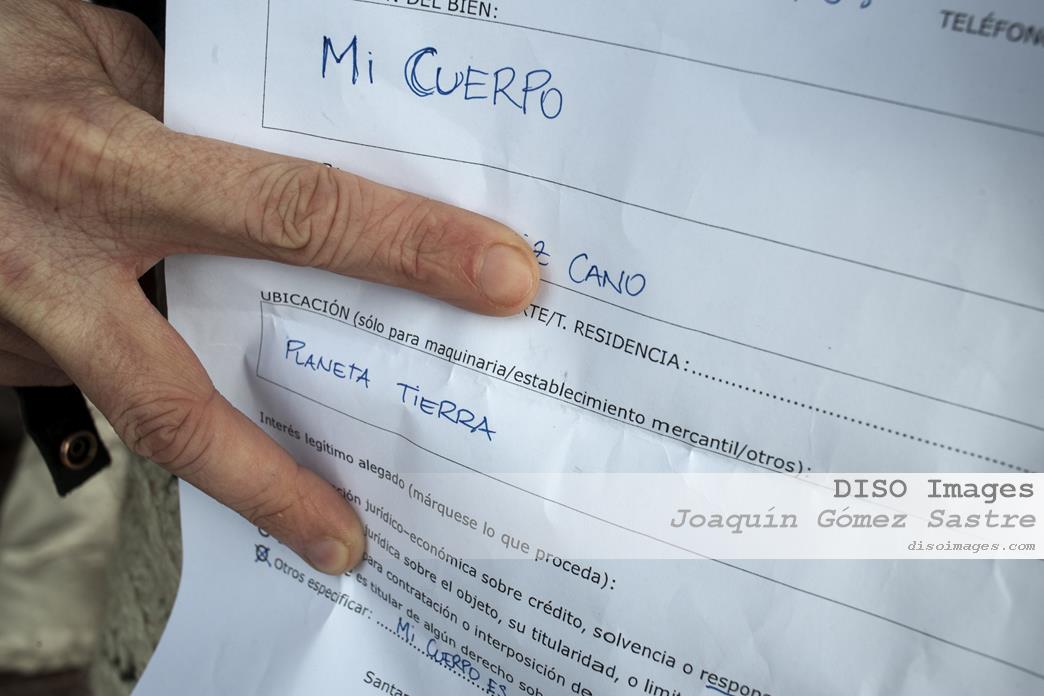 DEL BIEN:
TELÉFONO
Mi CUERPO
CANO
RTE/T. RESIDENCIA:
UBICACIÓN (sólo para maquinaria/establecimiento mercantil/otros):
PLANETA TIERRA
Interés legítimo alegado (márquese lo que proceda):
jurídico-económica sobre crédito, solvencia o respon
jurídica sobre el objeto, su titularidad, o limit
para contratación o interposición de
es titular de algún derecho sob
Otros especificar: Mi CUERPO ES
Santan
DISO Images
Joaquín Gómez Sastre
disoimages.com